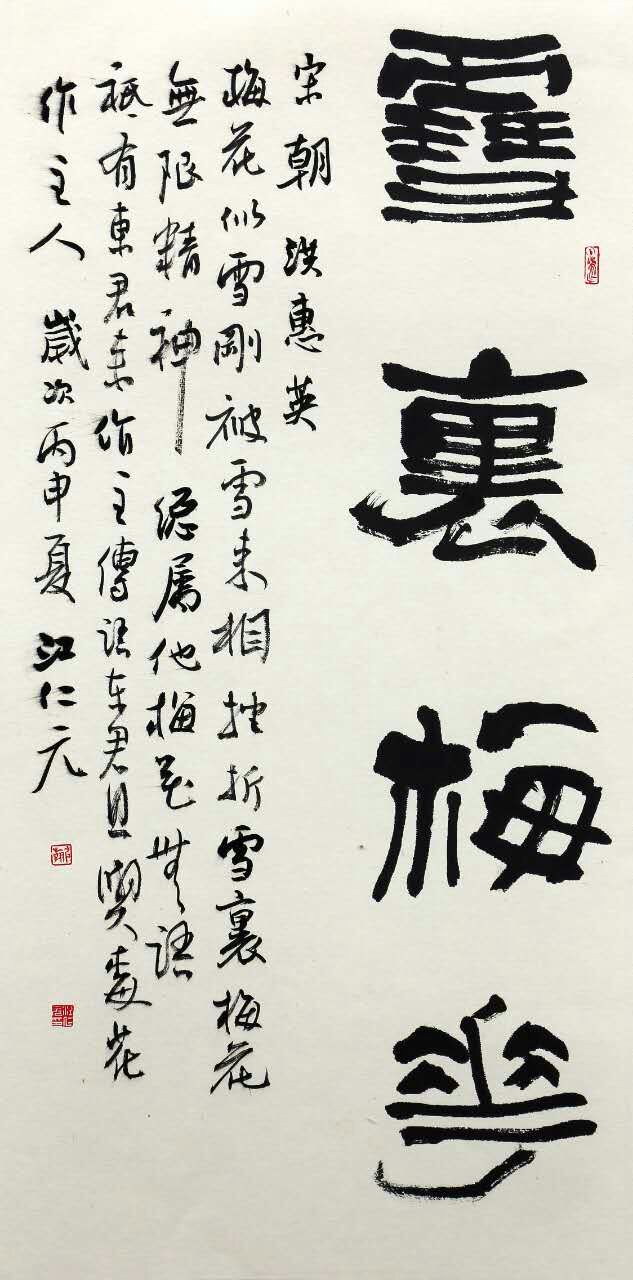 雪裏梅花
宋朝 洪惠英
梅花似雪剛被雪来相挫折雪裏梅花
無限精神總属他梅花無語
祗有東君来作主傳語东君且與梅花
作主人 歲次丙申夏 江仁元